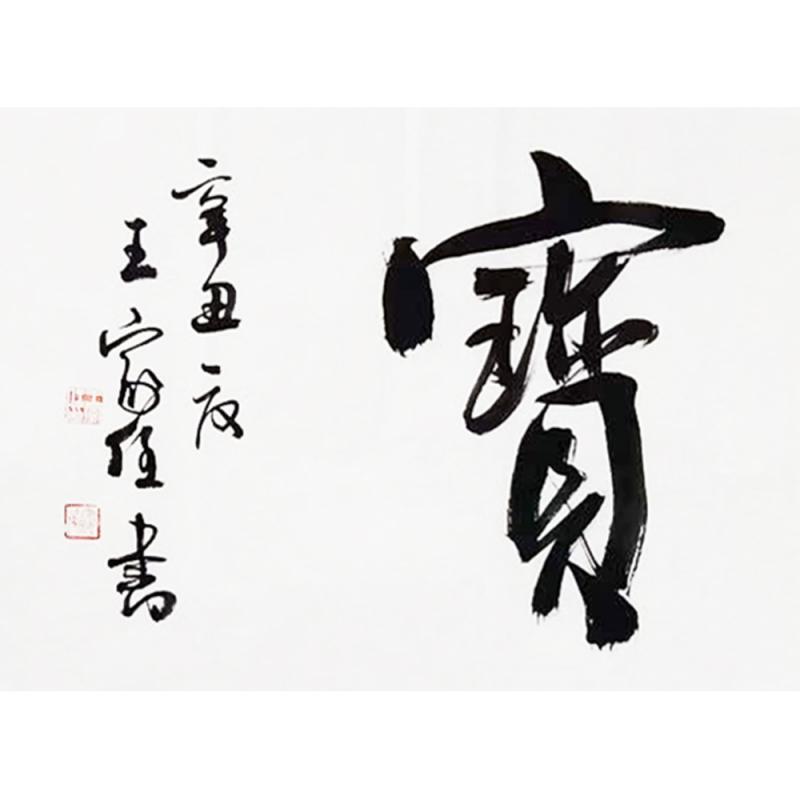 寶
辛丑夏
王家任書